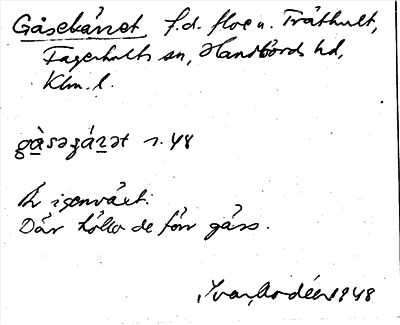 Gåsekärret f.d. floe u. Tråthult,
Fagerhults sn, Handbörds hd,
Klm. l.
s. 48
Är igenväxt.
Där höllo de förr gäss.
Ivar Modéer 1948